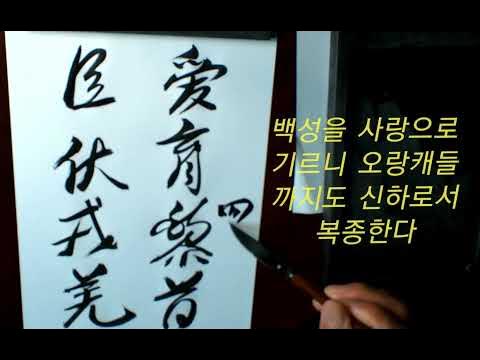 愛育黎首
臣伏戎羌
四
백성을 사랑으로
기르니 오랑캐들
까지도 신하로서
복종한다